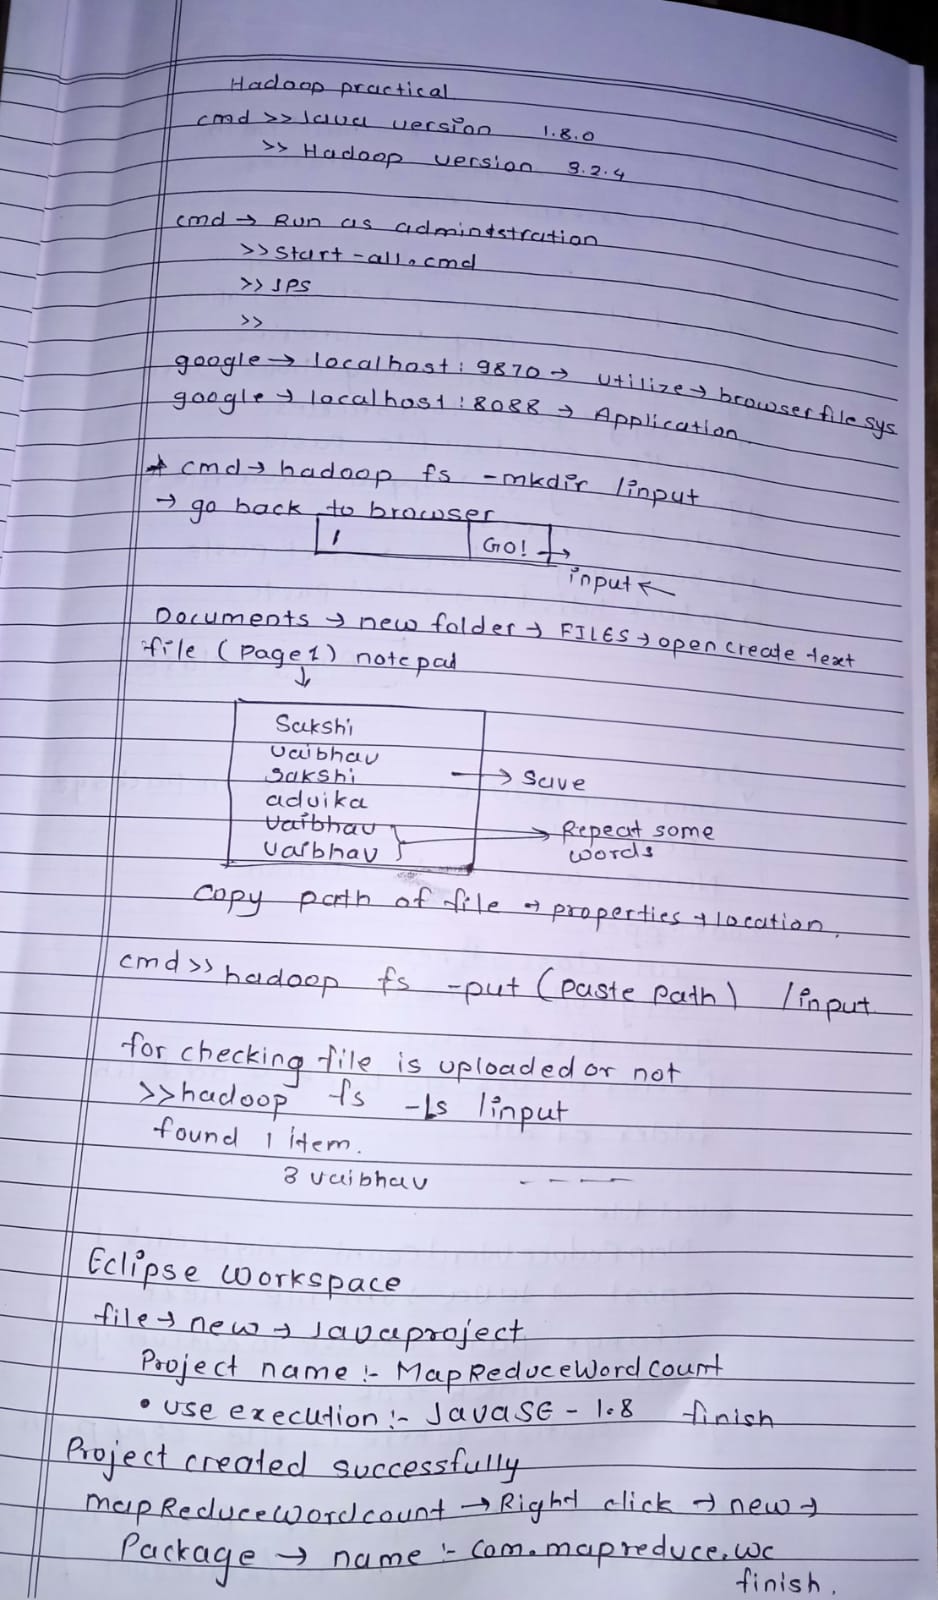 Hadoop practical
cmd >> Java version 1.8.0
>> Hadoop version 3.2.4
cmd → Run as admintstration
>> Start -all.cmd
>> JPS
>>
google → localhost: 9870 → utilize → browser file sys
google → localhost :8088 → Application.
* cmd → hadoop fs -mkdir /input
→ go back to browser
/ GO! →
input ←
Documents → new folder → FILES → open create text
file (page1) notepad
↓
Sakshi
vaibhav
sakshi → Save
advika
vaibhav → Repeat some
vaibhav words
copy path of file → properties → location.
cmd >> hadoop fs -put (paste path) /input
for checking file is uploaded or not
>> hadoop fs -Ls /input
found 1 item.
3 vaibhav - - - -
Eclipse workspace
file → new → Javaproject
Project name :- MapReduceWordCount
• use execution :- JavaSE - 1.8 finish
Project created successfully
mapReduceWordcount → Right click → new →
Package → name :- com.mapreduce.wc
finish.